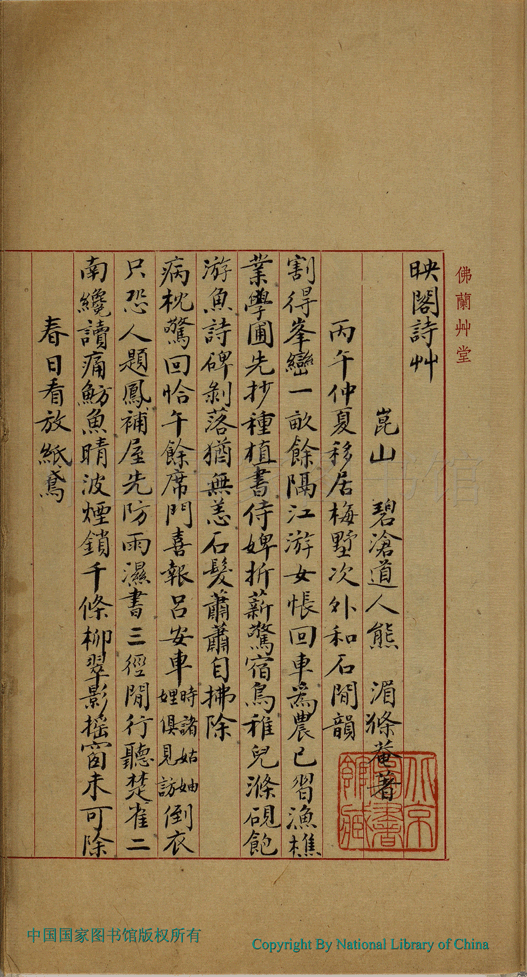 佛蘭艸堂
映閣詩艸
崑山 碧滄道人熊 湄滌菴著
丙午仲夏移居梅墅次外和石閒韻
割得峯巒一畝餘隔江游女悵回車為農已習漁樵
業學圃先抄種植書侍婢折薪驚宿鳥稚兒滌硯飽
游魚詩碑剝落猶無恙石髮蕭蕭自拂除
病枕驚回恰午餘席門喜報呂安車時諸姑妯娌俱見訪倒衣
只恐人題鳳補屋先防雨濕書三徑閒行聽楚雀二
南纔讀痛魴魚晴波煙鎖千條柳翠影搖窗未可除
春日看放紙鳶
北京圖書館藏
中国国家图书馆版权所有
Copyright By National Library of China